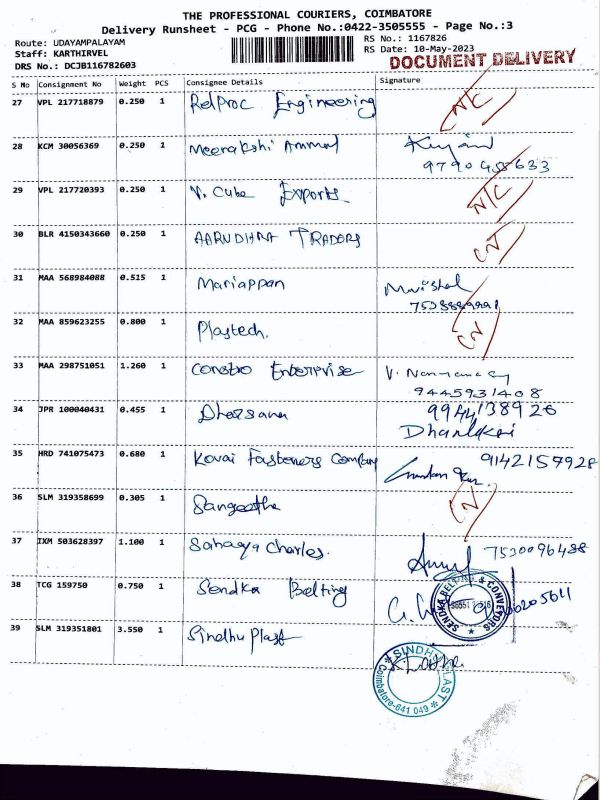 THE PROFESSIONAL COURIERS, COIMBATORE
Delivery Runsheet - PCG - Phone No.:0422-3505555 - Page No.:3
Route: UDAYAMPALAYAM RS No.: 1167826
Staff: KARTHIRVEL RS Date: 10-May-2023
DRS No.: DCJB116782603 DOCUMENT DELIVERY
S No Consignment No Weight PCS Consignee Details Signature
27 VPL 217718879 0.250 1 RelProc Engineering N/C
28 KCM 30056369 0.250 1 Meenakshi Ammal
29 VPL 217720393 0.250 1 V. Cube Exports. N/C
30 BLR 4150343660 0.250 1 AARUDHRA TRADORS CN
31 MAA 568984088 0.515 1 Mariappan
32 MAA 859623255 0.800 1 Plastech. CN
33 MAA 298751051 1.260 1 Constro Enterprise
9445931408
34 JPR 100040431 0.455 1 Dharsana 9944138926
35 HRD 741075473 0.680 1 Kovai Fasteners Company 9142157928
36 SLM 319358699 0.305 1 Sangeetha CN
37 IXM 503628397 1.100 1 Sahaya Charles. 7530096488
38 TCG 159750 0.750 1 Sendka Belting
SENDKA BELTING & CONVEYORS
39 SLM 319351801 3.550 1 Sindhu Plast
SINDHU PLAST
Coimbatore-641 049